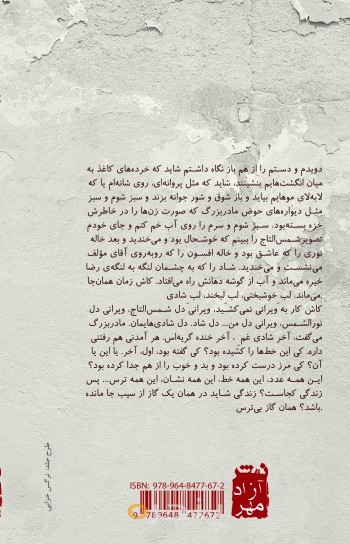 دویدم و دستم را از هم باز نگاه داشتم شاید که خرده‌های کاغذ به
میان انگشت‌هایم بنشینند، شاید که مثل پروانه‌ای، روی شانه‌ام یا که
لابه‌لای موهایم بیاید و باز شوق و شور جوانه بزند و سبز شوم و سبز
مثل دیواره‌های حوض مادربزرگ که صورت زن‌ها را در خاطرش
خزه بسته‌بود. سبز شوم و سرم را روی آب خم کنم و جای خودم
تصویر شمس‌التاج را ببینم که خوشحال بود و می‌خندید و بعد خاله
نوری را که عاشق بود و خاله افسون را که روبه‌روی آقای مؤلف
می‌نشست و می‌خندید. شاد را که به چشمان لنگه به لنگه‌ی رضا
خیره می‌ماند و آب از گوشه دهانش راه می‌افتاد. کاش زمان همان‌جا
می‌ماند، لب خوشبختی، لب لبخند، لب شادی.
کاش کار به ویرانی نمی‌کشید، ویرانی دل شمس‌التاج، ویرانی دل
نورالشمس، ویرانی دل من... دل شاد. دل شادی‌هایمان. مادربزرگ
می‌گفت، آخر شادی غم . آخر خنده گریه‌اس. هر آمدنی هم رفتنی
داره. کی این خط‌ها را کشیده بود؟ کی گفته بود، اول، آخر. یا این یا
آن؟ کی مرز درست کرده بود و بد و خوب را از هم جدا کرده بود؟
این همه عدد، این همه خط، این همه نشان، این همه ترس... پس
زندگی کجاست؟ زندگی شاید در همان یک گاز از سیب جا مانده
باشد؟ همان گاز بی‌ترس.
طرح جلد: نرگس خزایی
ISBN: 978-964-8477-67-2
9 789648 477672
آزاد
مهر